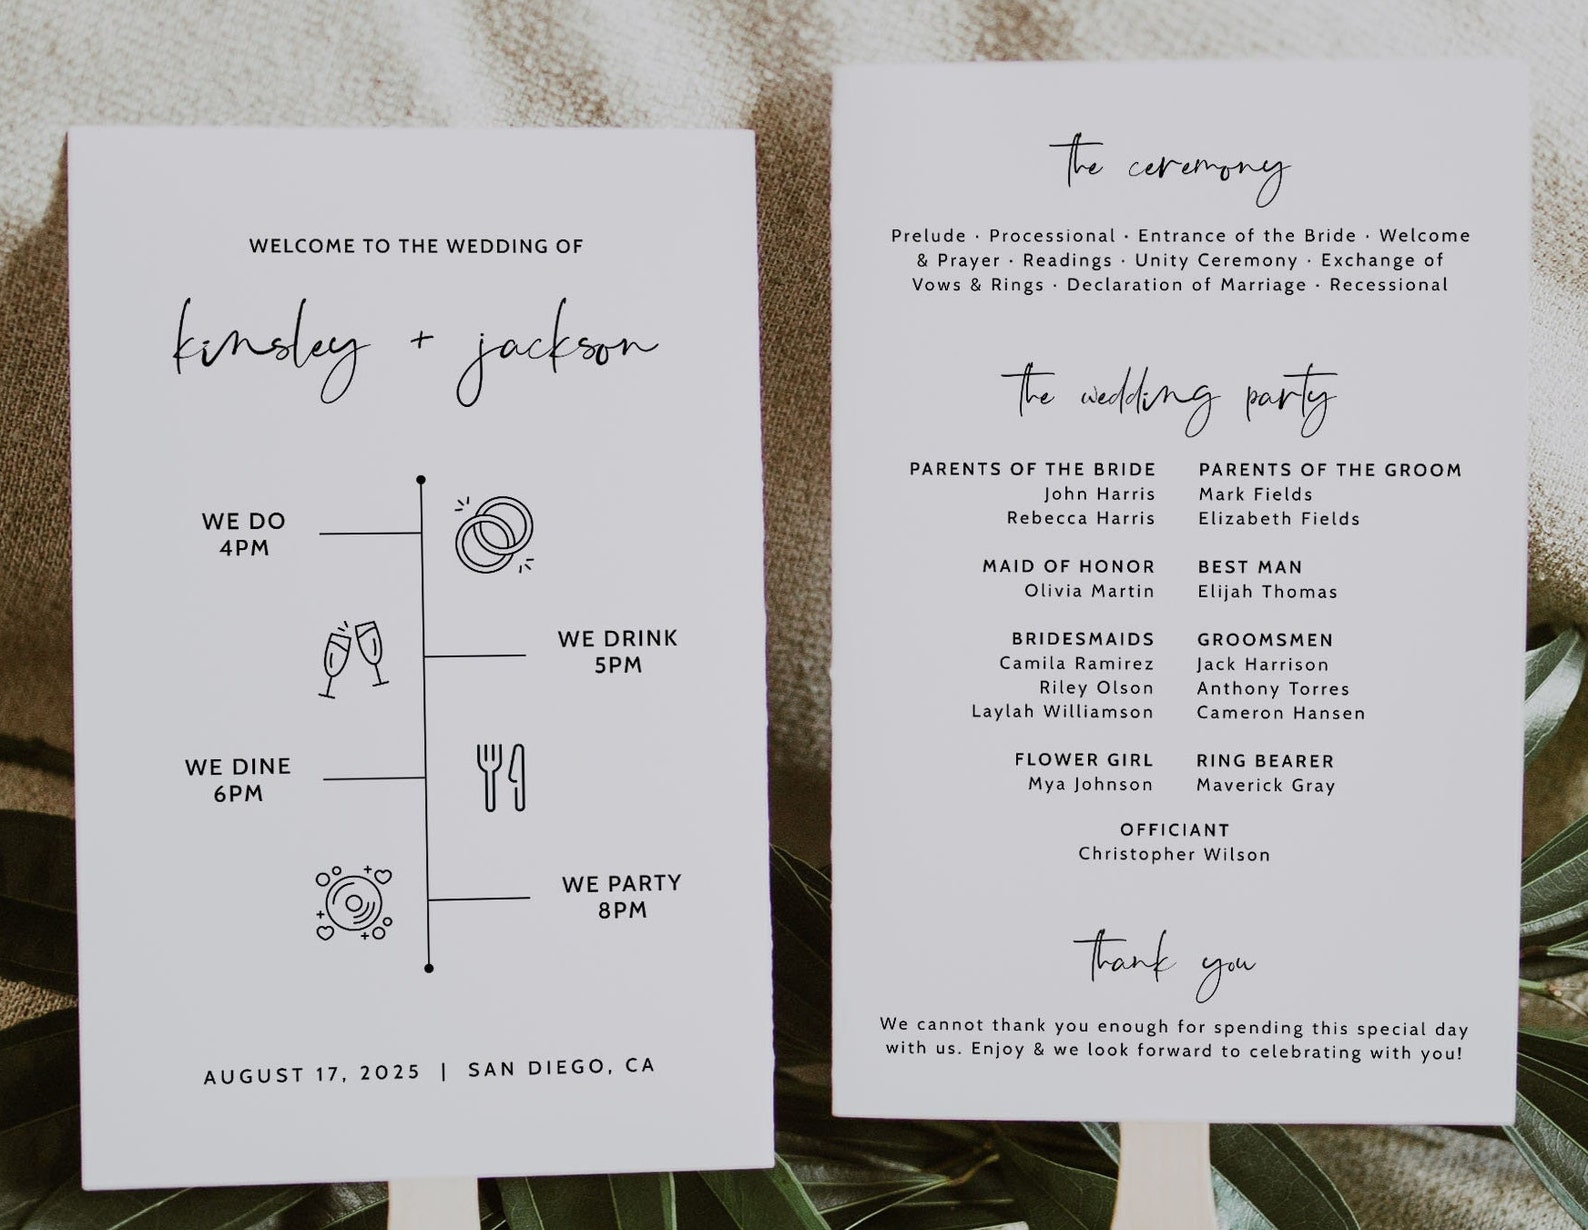 WELCOME TO THE WEDDING OF
kinsley + jackson
WE DO
4PM
WE DRINK
5PM
WE DINE
6PM
WE PARTY
8PM
AUGUST 17, 2025 | SAN DIEGO, CA
the ceremony
Prelude · Processional · Entrance of the Bride · Welcome
& Prayer · Readings · Unity Ceremony · Exchange of
Vows & Rings · Declaration of Marriage · Recessional
the wedding party
PARENTS OF THE BRIDE
John Harris
Rebecca Harris
PARENTS OF THE GROOM
Mark Fields
Elizabeth Fields
MAID OF HONOR
Olivia Martin
BEST MAN
Elijah Thomas
BRIDESMAIDS
Camila Ramirez
Riley Olson
Laylah Williamson
GROOMSMEN
Jack Harrison
Anthony Torres
Cameron Hansen
FLOWER GIRL
Mya Johnson
RING BEARER
Maverick Gray
OFFICIANT
Christopher Wilson
thank you
We cannot thank you enough for spending this special day
with us. Enjoy & we look forward to celebrating with you!